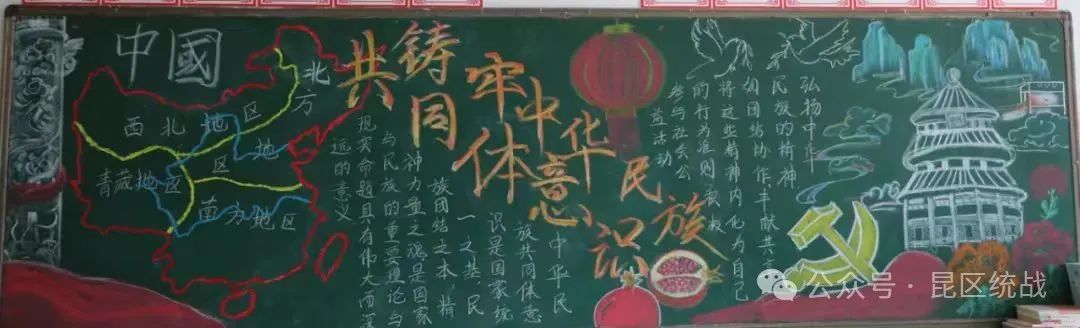 中國
北方
西北地区
地区
青藏地区
南方地区
铸牢中华民族
共同体意识
中华民
族共同体意
识是国家统
一之基 民
族团结之本 精
神力量之魂是国家
与民族的重要理论与
现实命题且有伟大而深
远的意义
弘扬中华
民族的精神
如团结协作丰献共
将这些精神内化为自己
的行为准则
参与社会公
益活动
公众号·昆区统战